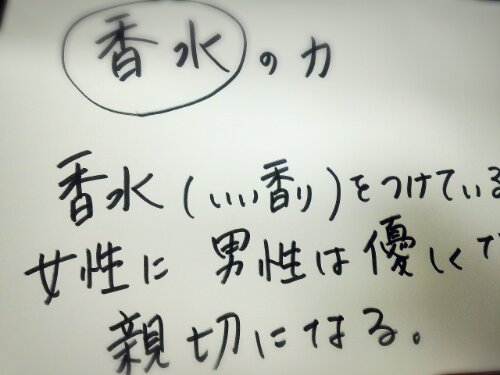 香水の力
香水(いい香り)をつけている
女性に男性は優しく
親切になる。